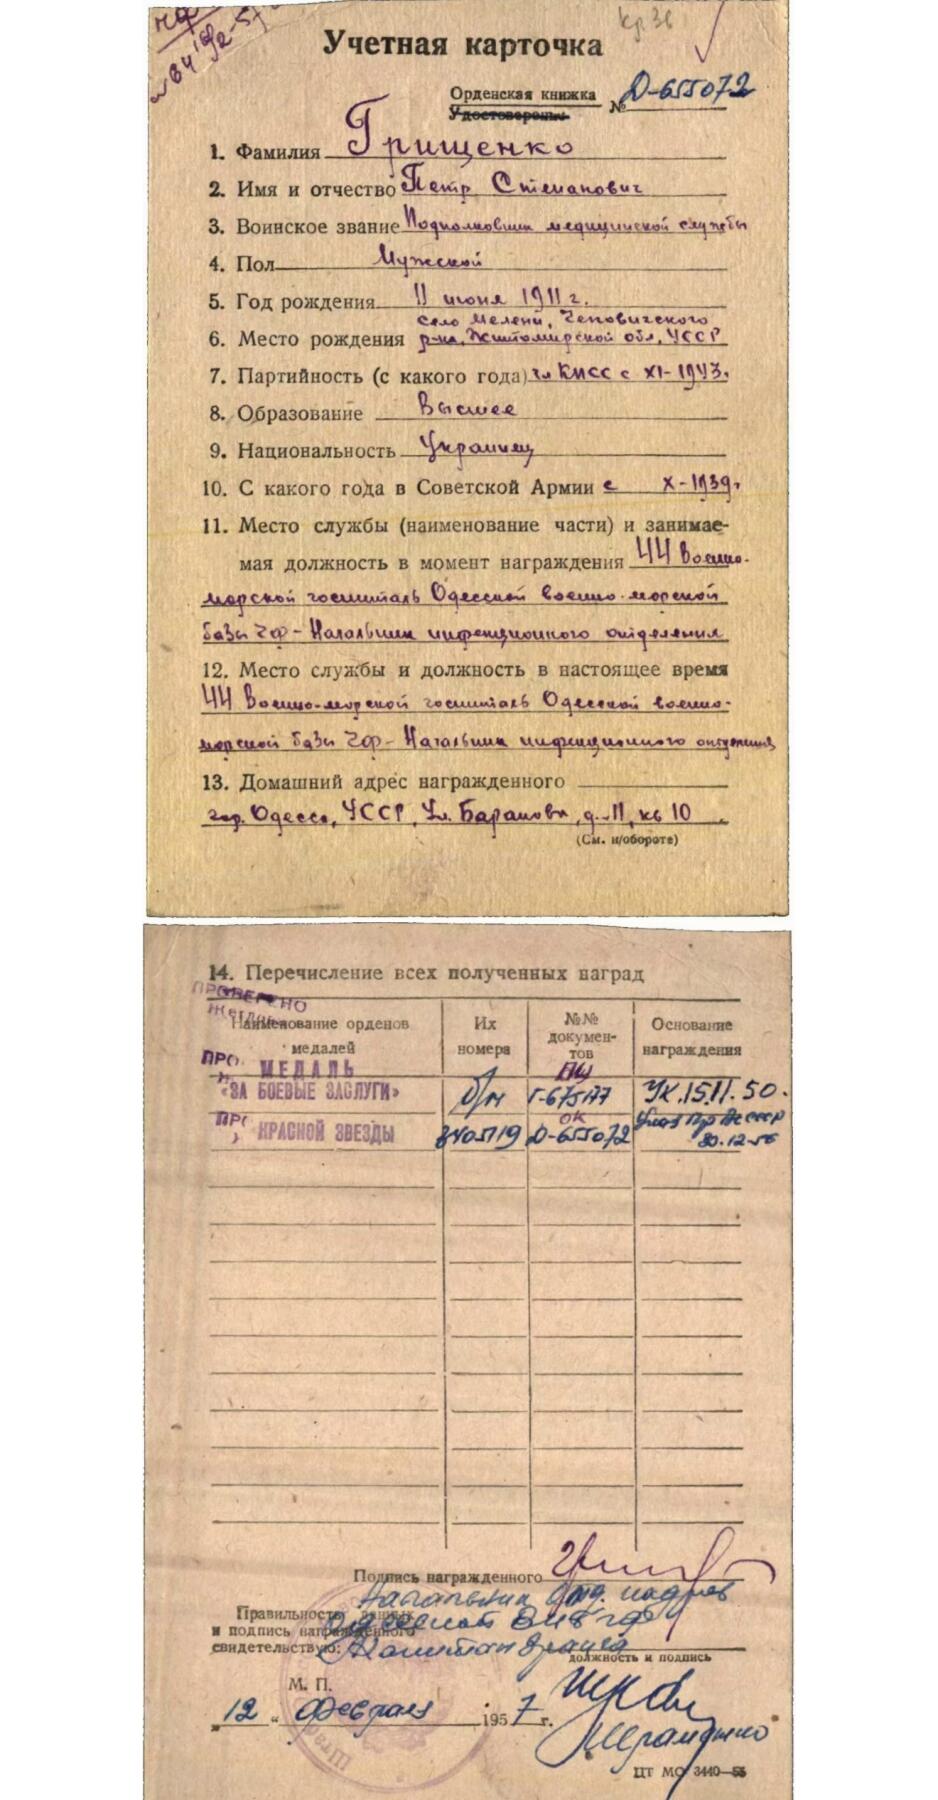 Кр 36
Учетная карточка
Орденская книжка № Д-655072
Удостоверение
1. Фамилия Грищенко
2. Имя и отчество Петр Степанович
3. Воинское звание Подполковник медицинской службы
4. Пол Мужской
5. Год рождения 11 июня 1911 г.
село Мелени, Чеповичского
6. Место рождения р-на, Житомирской обл, УССР
7. Партийность (с какого года) чл КПСС с XI-1943.
8. Образование Высшее
9. Национальность Украинец
10. С какого года в Советской Армии с X-1939г
11. Место службы (наименование части) и занимае-
мая должность в момент награждения 44 Военно-
морской госпиталь Одесской военно-морской
базы ЧФ - Начальник инфекционного отделения
12. Место службы и должность в настоящее время
44 Военно-морской госпиталь Одесской военно-
морской базы ЧФ - Начальник инфекционного отделения
13. Домашний адрес награжденного
гор. Одесса, УССР, Ул. Баранова, д. 11, кв 10
(См. н/обороте)
14. Перечисление всех полученных наград
ПРОВЕРЕНО
Наименование орденов медалей
Их номера
№№ документов
Основание награждения
МЕДАЛЬ
«ЗА БОЕВЫЕ ЗАСЛУГИ» б/н Г-675177 УК. 15.11.50.
КРАСНОЙ ЗВЕЗДЫ 3405119 ОК Д-655072 Указ През ВС СССР
30.12.56
Подпись награжденного
Начальник отд. кадров
Правильность данных Одесской ВМБ ЧФ
и подпись награжденного
свидетельствую: Капитан 3 ранга
должность и подпись
М. П.
„12“ февраля 1957 г.
ЦТ МО 3440—55